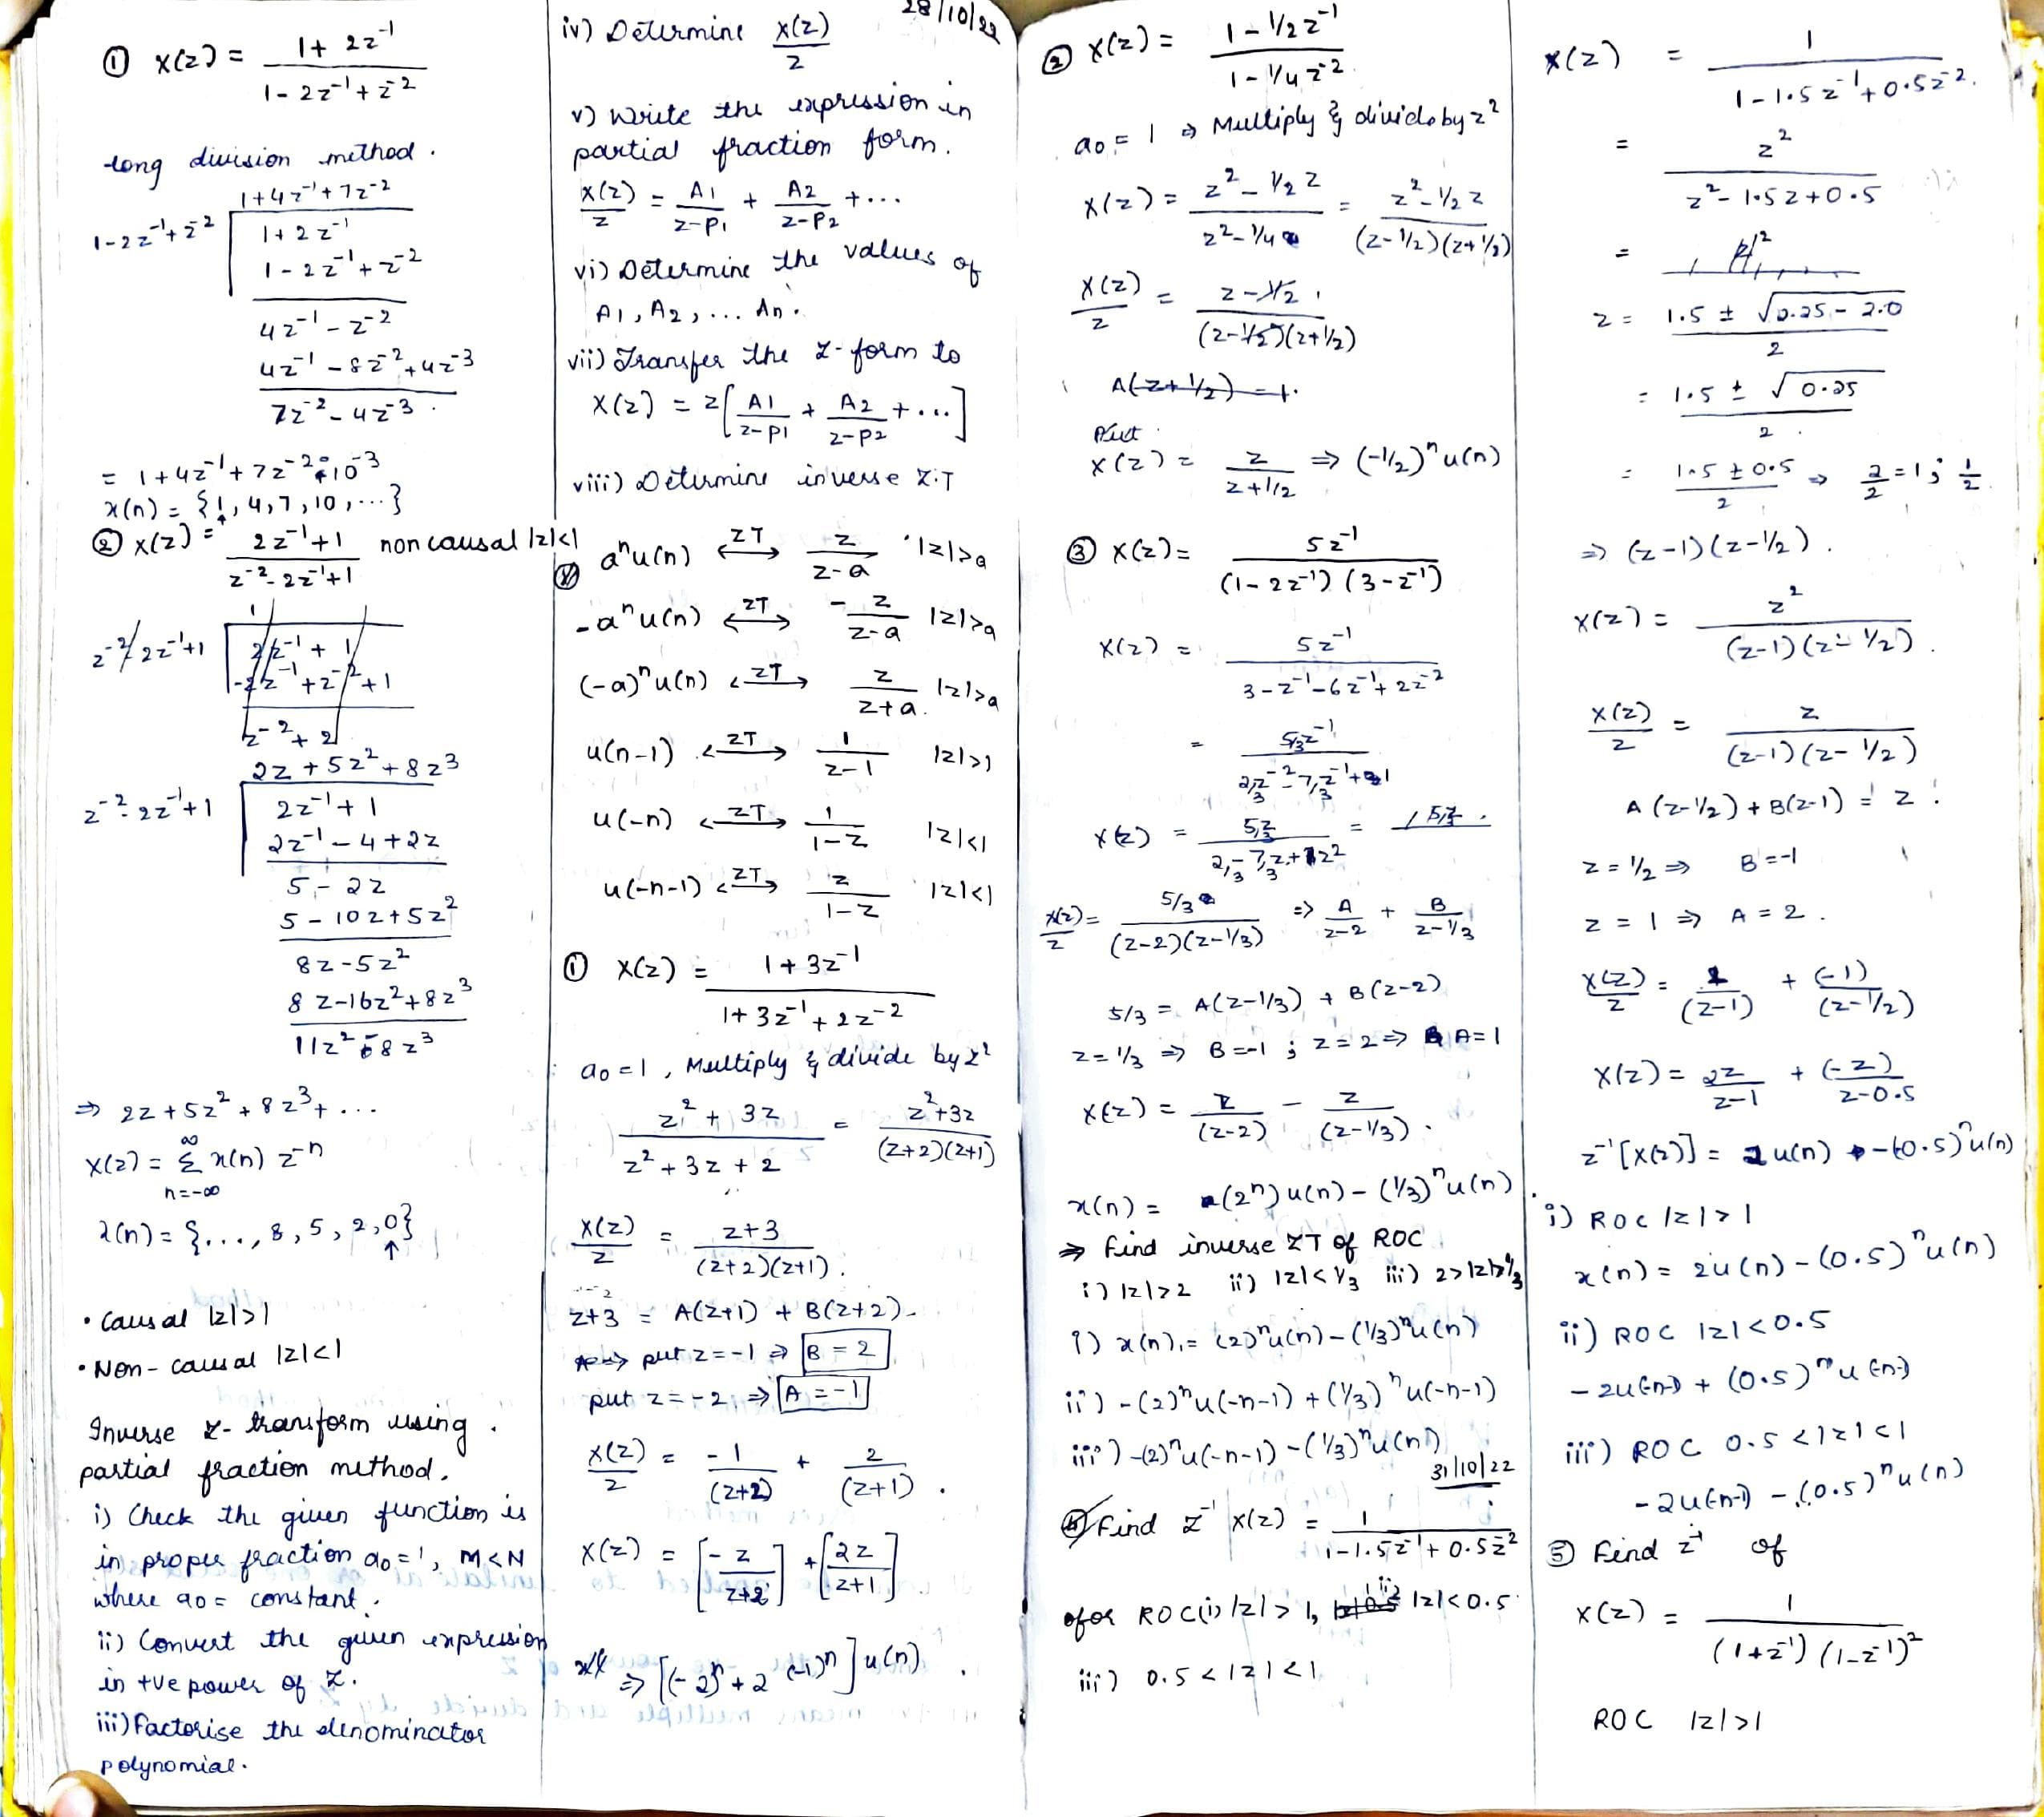 ① x(z) = 1 + 2z^-1 / 1 - 2z^-1 + z^-2
long division method.
1 + 4z^-1 + 7z^-2
1 - 2z^-1 + z^-2
1 + 2z^-1
1 - 2z^-1 + z^-2
4z^-1 - z^-2
4z^-1 - 8z^-2 + 4z^-3
7z^-2 - 4z^-3.
= 1 + 4z^-1 + 7z^-2 + 10^-3
x(n) = {1, 4, 7, 10, ...}
↑
② x(z) = 2z^-1 + 1 / z^-2 - 2z^-1 + 1 non causal |z|<1
z^-2 - 2z^-1 + 1
2z + 5z² + 8z³
z^-2 - 2z^-1 + 1
2z^-1 + 1
2z^-1 - 4 + 2z
5 - 2z
5 - 10z + 5z²
8z - 5z²
8z - 16z² + 8z³
11z² - 8z³
⇒ 2z + 5z² + 8z³ + ...
x(z) = Σ x(n) z^-n
n=-∞ ∞
x(n) = {..., 8, 5, 2, 0}
↑
• Causal |z|>1
• Non-causal |z|<1
Inverse z-transform using
partial fraction method.
i) Check the given function is
in proper fraction a0=1, M<N
where a0 = constant.
ii) Convert the given expression
in +ve power of z.
iii) Factorise the denominator
polynomial.
28/10/22
iv) Determine x(z) / z
v) Write the expression in
partial fraction form.
x(z) / z = A1 / z-P1 + A2 / z-P2 + ...
vi) Determine the values of
A1, A2, ... An.
vii) Transfer the z-form to
X(z) = z[A1 / z-P1 + A2 / z-P2 + ...]
viii) Determine inverse Z.T
a^n u(n) ←ZT→ z / z-a |z|>a
-a^n u(n) ←ZT→ -z / z-a |z|>a
(-a)^n u(n) ←ZT→ z / z+a |z|>a
u(n-1) ←ZT→ 1 / z-1 |z|>1
u(-n) ←ZT→ 1 / 1-z |z|<1
u(-n-1) ←ZT→ z / 1-z |z|<1
① X(z) = 1 + 3z^-1 / 1 + 3z^-1 + 2z^-2
a0=1, Multiply & divide by z²
z² + 3z / z² + 3z + 2 = z² + 3z / (z+2)(z+1)
X(z) / z = z+3 / (z+2)(z+1).
z+3 = A(z+1) + B(z+2).
put z=-1 ⇒ B = 2
put z=-2 ⇒ A = -1
x(z) / z = -1 / (z+2) + 2 / (z+1).
X(z) = [-z / z+2] + [2z / z+1]
⇒ [(-2)^n + 2 (-1)^n] u(n).
② X(z) = 1 - 1/2 z^-1 / 1 - 1/4 z^-2
a0 = 1 ⇒ Multiply & divide by z²
X(z) = z² - 1/2 z / z² - 1/4 = z² - 1/2 z / (z-1/2)(z+1/2)
X(z) / z = z - 1/2 / (z-1/2)(z+1/2)
A(z+1/2) = 1.
Put
X(z) = z / z+1/2 ⇒ (-1/2)^n u(n)
③ X(z) = 5z^-1 / (1-2z^-1)(3-z^-1)
X(z) = 5z^-1 / 3 - z^-1 - 6z^-1 + 2z^-2
= 5/3 z^-1 / 2/3 z^-2 - 7/3 z^-1 + 1
X(z) = 5/3 z / 2/3 - 7/3 z + z² = 5/3 z.
x(z) / z = 5/3 / (z-2)(z-1/3) ⇒ A / z-2 + B / z-1/3
5/3 = A(z-1/3) + B(z-2)
z=1/3 ⇒ B=-1 ; z=2 ⇒ A=1
X(z) = z / (z-2) - z / (z-1/3).
x(n) = (2^n) u(n) - (1/3)^n u(n).
⇒ Find inverse ZT of ROC
i) |z|>2 ii) |z|<1/3 iii) 2>|z|>1/3
i) x(n) = (2)^n u(n) - (1/3)^n u(n)
ii) -(2)^n u(-n-1) + (1/3)^n u(-n-1)
iii) -(2)^n u(-n-1) - (1/3)^n u(n)
31/10/22
④ Find z^-1 X(z) = 1 / 1 - 1.5z^-1 + 0.5z^-2
for ROC (i) |z|>1, ii) |z|<0.5
iii) 0.5<|z|<1
X(z) = 1 / 1 - 1.5z^-1 + 0.5z^-2.
= z² / z² - 1.5z + 0.5
=
z = 1.5 ± √2.25 - 2.0 / 2
= 1.5 ± √0.25 / 2.
= 1.5 ± 0.5 / 2 ⇒ 2/2 = 1 ; 1/2
⇒ (z-1)(z-1/2).
X(z) = z² / (z-1)(z-1/2).
X(z) / z = z / (z-1)(z-1/2)
A(z-1/2) + B(z-1) = z.
z = 1/2 ⇒ B = -1
z = 1 ⇒ A = 2.
X(z) / z = 2 / (z-1) + (-1) / (z-1/2)
X(z) = 2z / z-1 + (-z) / z-0.5
z^-1[X(z)] = 2u(n) - (0.5)^n u(n)
i) ROC |z|>1
x(n) = 2u(n) - (0.5)^n u(n)
ii) ROC |z|<0.5
-2u(-n-1) + (0.5)^n u(-n-1)
iii) ROC 0.5<|z|<1
-2u(-n-1) - (0.5)^n u(n)
⑤ Find z^-1 of
X(z) = 1 / (1+z^-1)(1-z^-1)²
ROC |z|>1